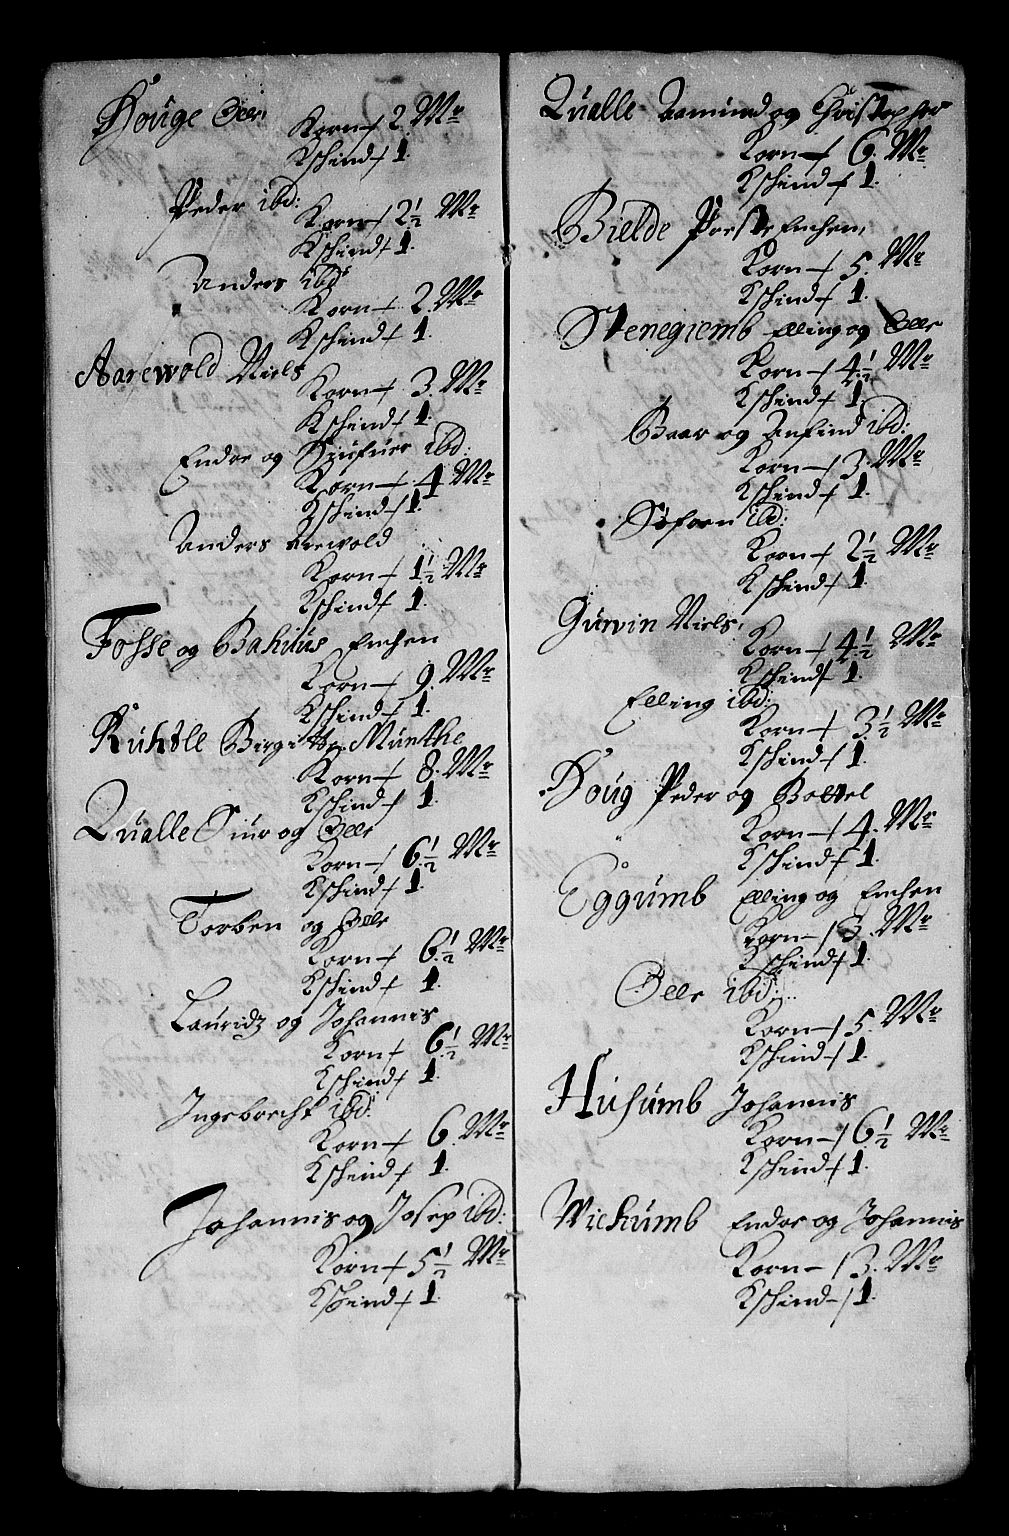 Houge Olle,
Korn - 2. Mr
Kschind - 1.
Peder ibd:
Korn - 2 1/2 Mr
Kschind - 1.
Anders ibd
Korn - 2. Mr
Kschind - 1.
Aarewold Niels
Korn - 3. Mr
Kschind - 1.
Endre og Siufuer ibd:
Korn - 4 Mr
Kschind - 1.
Anders Arewold
Korn - 1 1/2 Mr
Kschind - 1.
Fosse og Bakus Enchen
Korn - 9. Mr
Kschind - 1.
Birgitte Munthe
Korn - 8. Mr
Kschind - 1.
Qualle Siur og Olle
Korn - 6 1/2 Mr
Kschind - 1.
Torben og Olle
Korn - 6 1/2 Mr
Kschind - 1.
Lauridz og Johannis
Korn - 6 1/2 Mr
Kschind - 1.
Ingebrecht ibd:
Korn - 6 Mr
Kschind - 1.
Johannis og Josep ibd:
Korn - 5 1/2 Mr
Kschind - 1.
Qualle Aamund og Christopher
Korn - 6. Mr
Kschind - 1.
Bielde Preste Enchen,
Korn - 5. Mr
Kschind - 1.
Stenegiemb Elling og Olle
Korn - 4 1/2 Mr
Kschind - 1.
Baar og Anfind ibd:
Korn - 3. Mr
Kschind - 1.
Sofren ibd:
Korn - 2 1/2 Mr
Kschind - 1.
Gurvin Niels,
Korn - 4 1/2 Mr
Kschind - 1.
Elling ibd:
Korn - 3 1/2 Mr
Kschind - 1.
Houg Peder og Bottel
Korn - 4. Mr
Kschind - 1.
Eggumb Elling og Enchen
Korn - 3. Mr
Kschind - 1.
Olle ibd:
Korn - 5. Mr
Kschind - 1.
Husumb Johannis
Korn - 6 1/2 Mr
Kschind - 1.
Wickumb Endre og Johannis
Korn - 3. Mr
Kschind - 1.